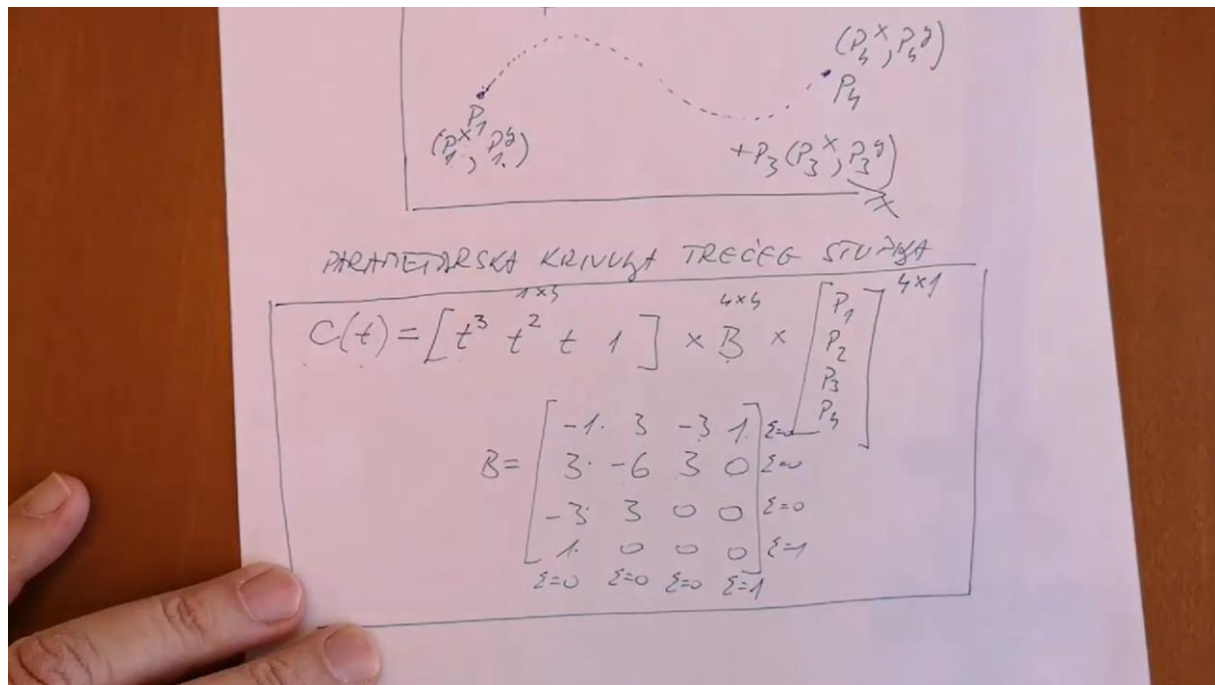 (P₄ˣ, P₄ʸ)
P₄
P₁
(P₁ˣ, P₁ʸ)
+P₃(P₃ˣ, P₃ʸ)
X
PARAMETARSKA KRIVULJA TREĆEG STUPNJA
C(t) = [t³ t² t 1] 1×4 × B 4×4 × [P₁ P₂ P₃ P₄] 4×1
B =
-1 3 -3 1 Σ=0
3 -6 3 0 Σ=0
-3 3 0 0 Σ=0
1 0 0 0 Σ=1
Σ=0 Σ=0 Σ=0 Σ=1